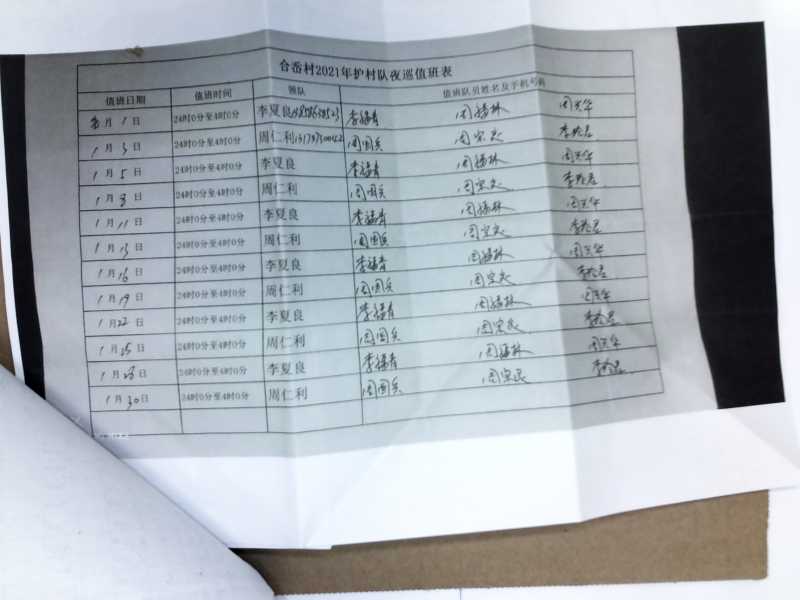 合岙村2021年护村队夜巡值班表
值班日期 值班时间 领队 值班队员姓名及手机号码
月1日 24时0分至4时0分 李夏良 李福青 周福林 周关华
1月3日 24时0分至4时0分 周仁利 周国兵 周宗民
1月5日 24时0分至4时0分 李夏良 李福青 周福林 周关华
1月日 24时0分至4时0分 周仁利 周国兵 周宗民
1月11日 24时0分至4时0分 李夏良 李福青 周福林 周关华
1月13日 24时0分至4时0分 周仁利 周国兵 周宗民
1月16日 24时0分至4时0分 李夏良 李福青 周福林 周关华
1月19日 24时0分至4时0分 周仁利 周国兵 周宗民
1月22日 24时0分至4时0分 李夏良 李福青 周福林 周关华
1月25日 24时0分至4时0分 周仁利 周国兵 周宗民
1月28日 24时0分至4时0分 李夏良 李福青 周福林 周关华
1月30日 24时0分至4时0分 周仁利 周国兵 周宗民